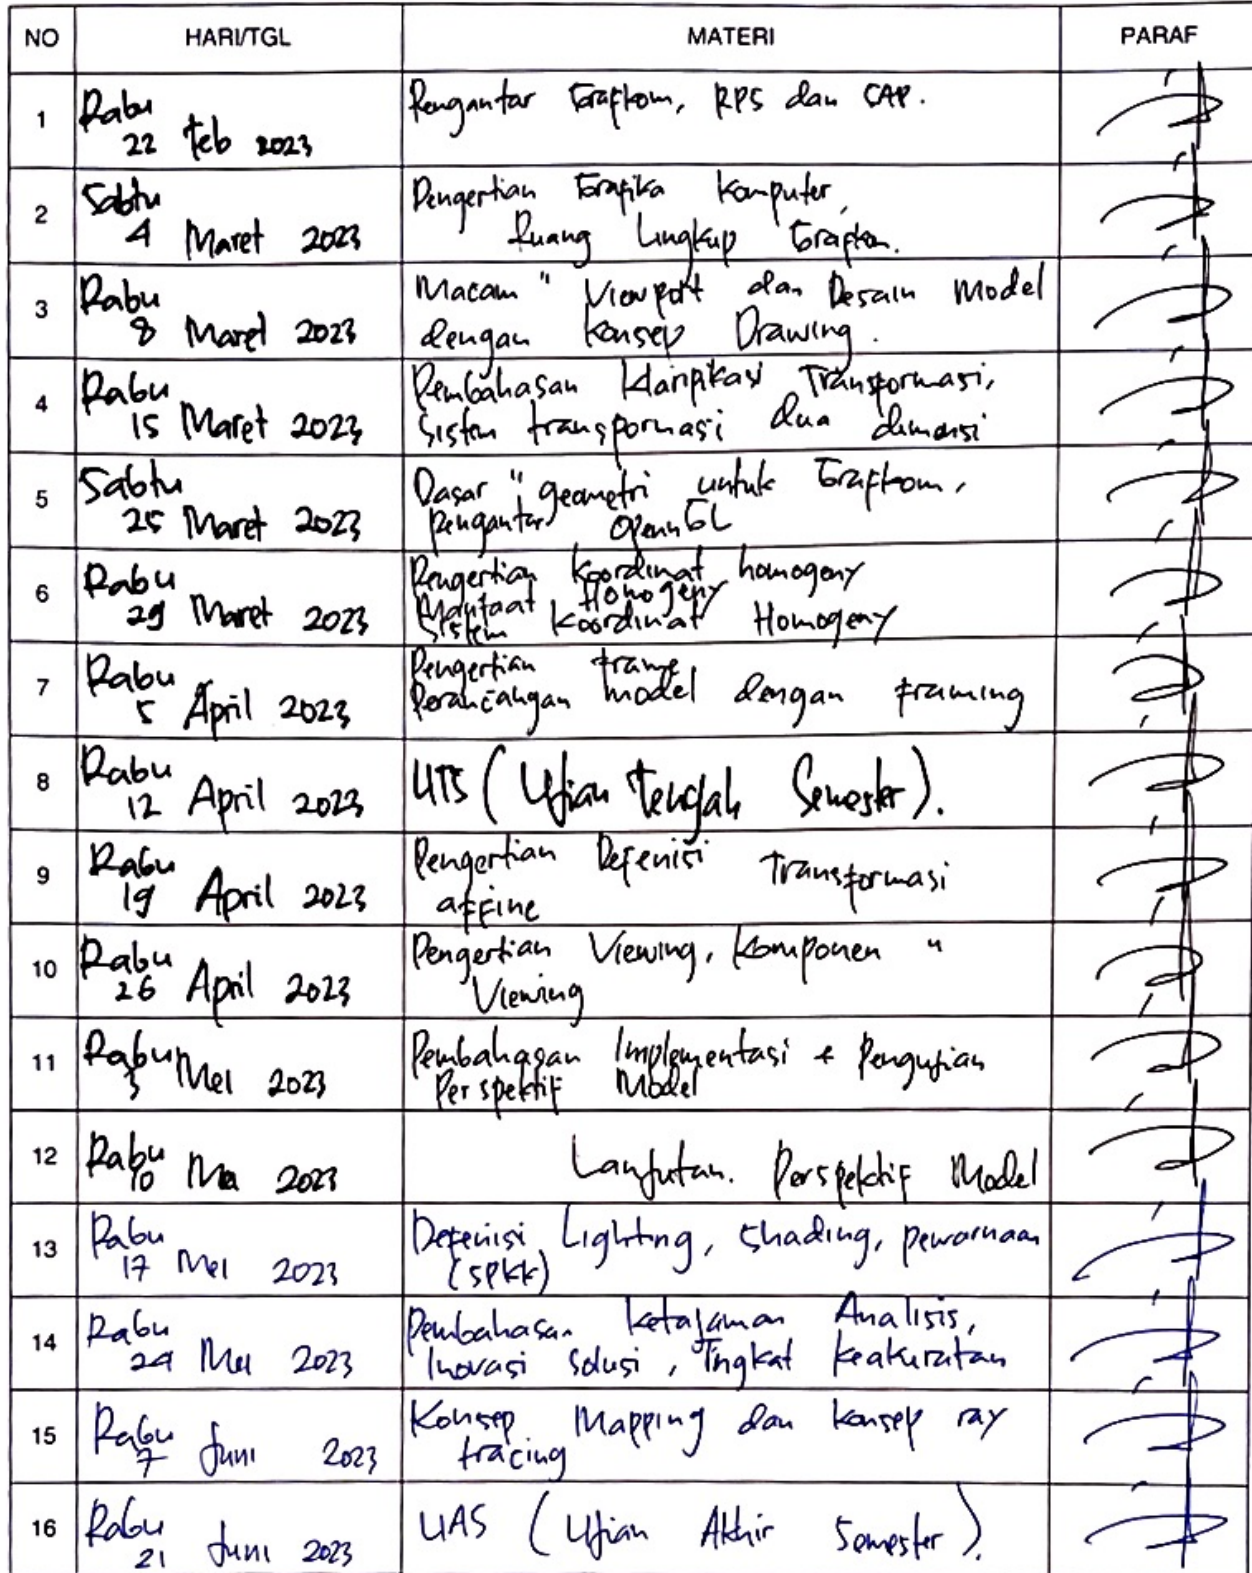 NO HARI/TGL MATERI PARAF
1 Rabu 22 Feb 2023 Pengantar Grafkom, RPS dan CAP.
2 Sabtu 4 Maret 2023 Pengertian Grafika Komputer,
Ruang Lingkup Grafkom.
3 Rabu 8 Maret 2023 Macam " Viewport dan Desain Model
dengan Konsep Drawing.
4 Rabu 15 Maret 2023 Pembahasan Transformasi,
Sistem transformasi dua dimensi
5 Sabtu 25 Maret 2023 Dasar " geometri untuk Grafkom,
pengantar OpennGL
6 Rabu 29 Maret 2023 Pengertian Koordinat homogeny
Manfaat Homogeny
Sistem Koordinat Homogeny
7 Rabu 5 April 2023 Pengertian frame
Perancangan model dengan framing
8 Rabu 12 April 2023 UTS (Ujian Tengah Semester).
9 Rabu 19 April 2023 Pengertian Defenisi Transformasi
affine
10 Rabu 26 April 2023 Pengertian Viewing, Komponen "
Viewing
11 Rabu 3 Mei 2023 Pembahasan Implementasi + Pengujian
Perspektif Model
12 Rabu 10 Me 2023 Lanjutan. Perspektif Model
13 Rabu 17 Mei 2023 Defenisi Lighting, Shading, pewarnaan
(SPKK)
14 Rabu 24 Mei 2023 Pembahasan ketajaman Analisis,
Inovasi solusi, Tingkat keakuratan
15 Rabu 7 Juni 2023 Konsep Mapping dan konsep ray
tracing
16 Rabu 21 Juni 2023 UAS (Ujian Akhir Semester).